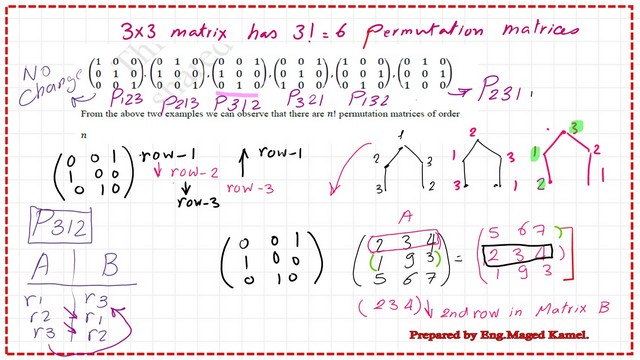 3x3 matrix has 3! = 6 permutation matrices
NO Change
1 0 0 0 1 0 0 0 1 0 0 1 1 0 0 0 1 0
0 1 0 1 0 0 1 0 0 0 1 0 0 0 1 0 0 1
0 0 1 0 0 1 0 1 0 1 0 0 0 1 0 1 0 0
P123 P213 P312 P321 P132 P231
From the above two examples we can observe that there are n! permutation matrices of order
n
0 0 1 row-1 row-1
1 0 0 row-2
0 1 0 row-3 row-3
1 2 3
2 3 1 3 1 2
3 2 3 1 2 1
P312
A B
r1 r3
r2 r1
r3 r2
0 0 1
1 0 0
0 1 0
A
2 3 4
1 9 3
5 6 7
=
5 6 7
2 3 4
1 9 3
(2 3 4) 2nd row in Matrix B
Prepared by Eng.Maged Kamel.